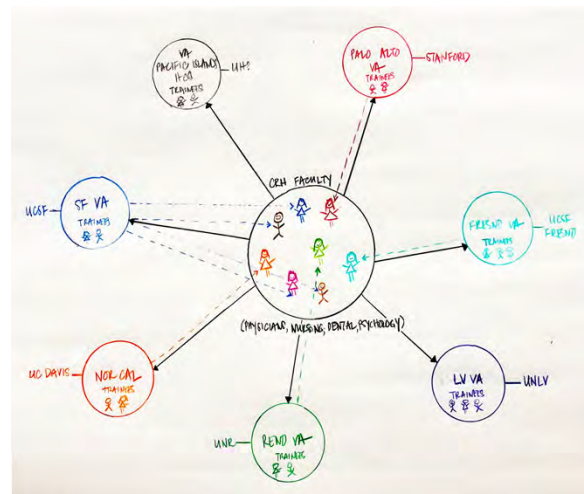 VA
PACIFIC ISLAND
HCS
TRAINEES
UH?
PALO ALTO
VA
TRAINEES
STANFORD
CRH FACULTY
UCSF
SF VA
TRAINEES
FRESNO VA
TRAINEES
UCSF
FRESNO
(PHYSICIANS, NURSING, DENTAL, PSYCHOLOGY)
UC DAVIS
NOR CAL
TRAINEES
LV VA
TRAINEES
UNLV
UNR
RENO VA
TRAINEES